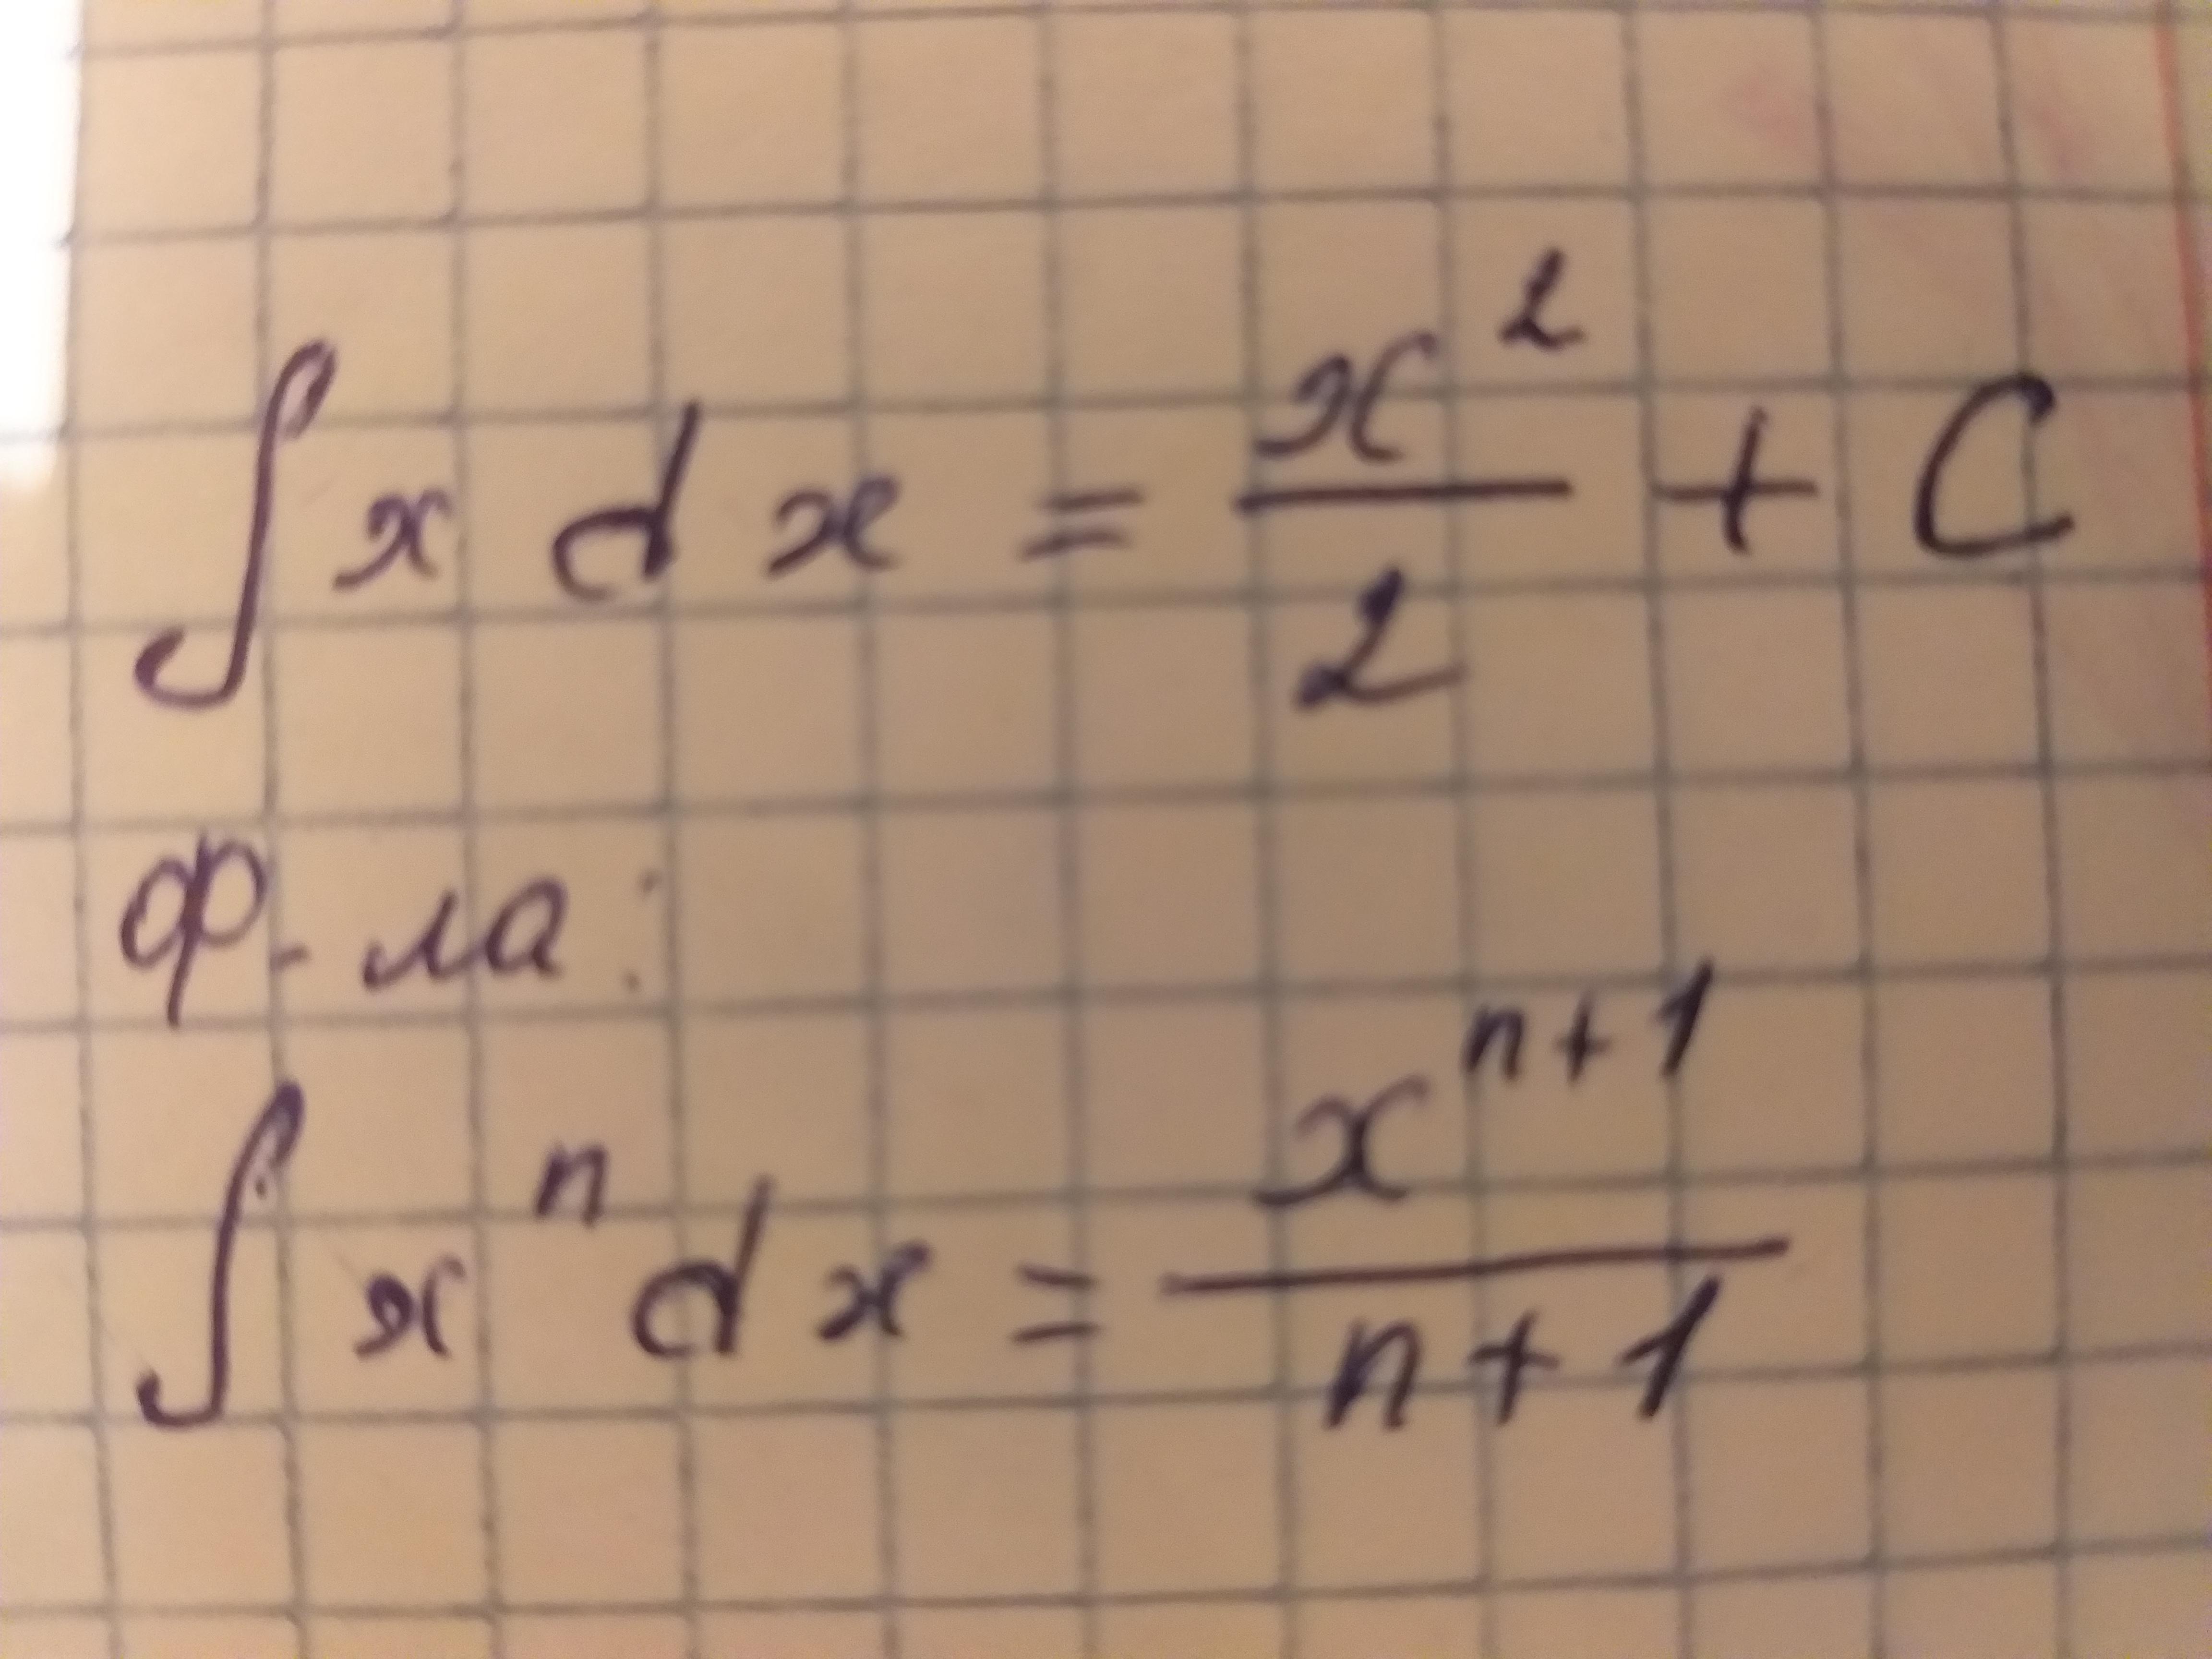 ∫ x dx = x²/2 + C
ф-ла:
∫ xⁿ dx = xⁿ⁺¹/n+1